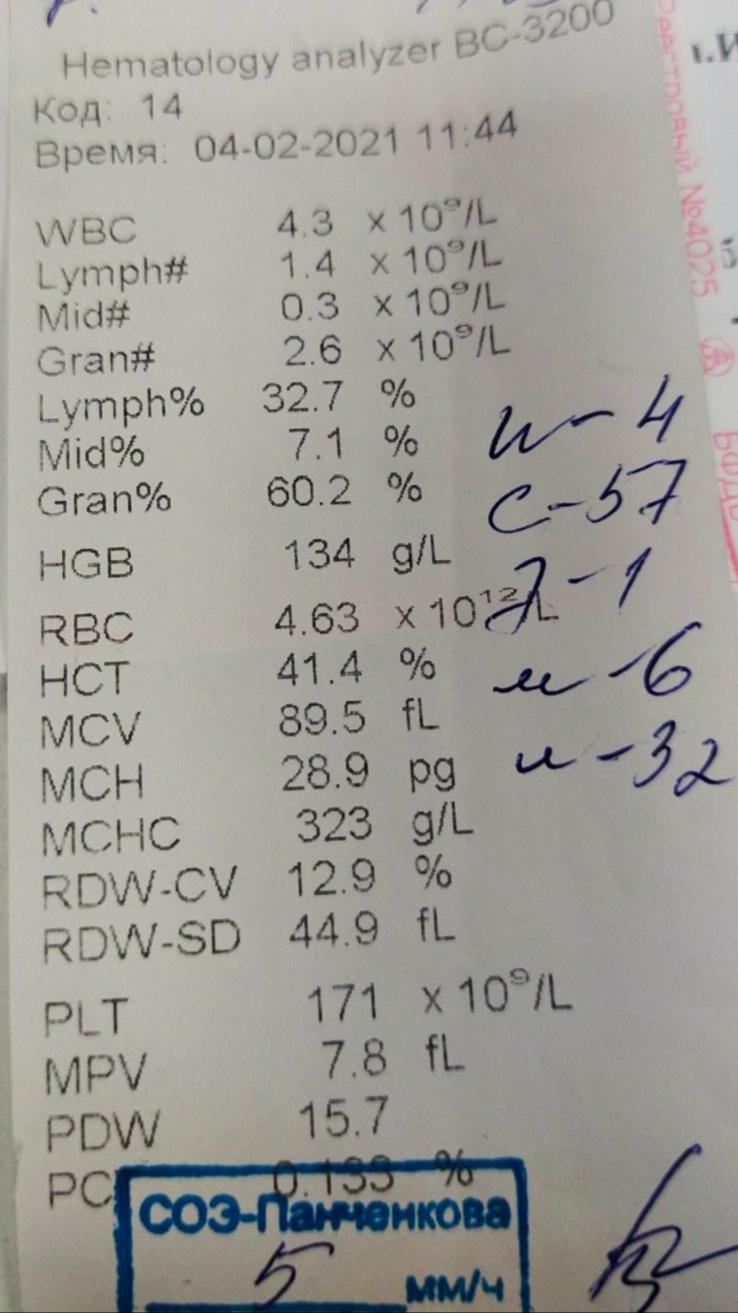 Hematology analyzer BC-3200
Код: 14
Время: 04-02-2021 11:44
WBC 4.3 x 10⁹/L
Lymph# 1.4 x 10⁹/L
Mid# 0.3 x 10⁹/L
Gran# 2.6 x 10⁹/L
Lymph% 32.7 %
Mid% 7.1 %
Gran% 60.2 %
п-4
с-57
HGB 134 g/L
э-1
RBC 4.63 x 10¹²/L
HCT 41.4 %
м-6
MCV 89.5 fL
л-32
MCH 28.9 pg
MCHC 323 g/L
RDW-CV 12.9 %
RDW-SD 44.9 fL
PLT 171 x 10⁹/L
MPV 7.8 fL
PDW 15.7
PC 0.133 %
СОЭ-Панченкова
5 мм/ч
№4025